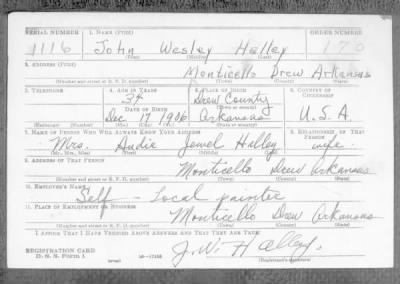 SERIAL NUMBER 1. NAME (Print) ORDER NUMBER
1116 John Wesley Halley 170
(First) (Middle) (Last)
2. ADDRESS (Print)
Monticello Drew Arkansas
(Number and street or R. F. D. number) (Town) (County) (State)
3. TELEPHONE 4. AGE IN YEARS 5. PLACE OF BIRTH 6. COUNTRY OF CITIZENSHIP
34 Drew County
DATE OF BIRTH (Town or county)
Dec 17 1906 Arkansas U.S.A.
(Exchange) (Number) (Mo.) (Day) (Yr.) (State or country)
7. NAME OF PERSON WHO WILL ALWAYS KNOW YOUR ADDRESS 8. RELATIONSHIP OF THAT PERSON
Mrs. Audie Jewel Halley wife
(Mr., Mrs., Miss) (First) (Middle) (Last)
9. ADDRESS OF THAT PERSON
Monticello Drew Arkansas
(Number and street or R. F. D. number) (Town) (County) (State)
10. EMPLOYER'S NAME
Self - Local painter
11. PLACE OF EMPLOYMENT OR BUSINESS
Monticello Drew Arkansas
(Number and street or R. F. D. number) (Town) (County) (State)
I AFFIRM THAT I HAVE VERIFIED ABOVE ANSWERS AND THAT THEY ARE TRUE.
REGISTRATION CARD J. W. Halley.
D. S. S. Form 1 (over) 16-17105 (Registrant's signature)